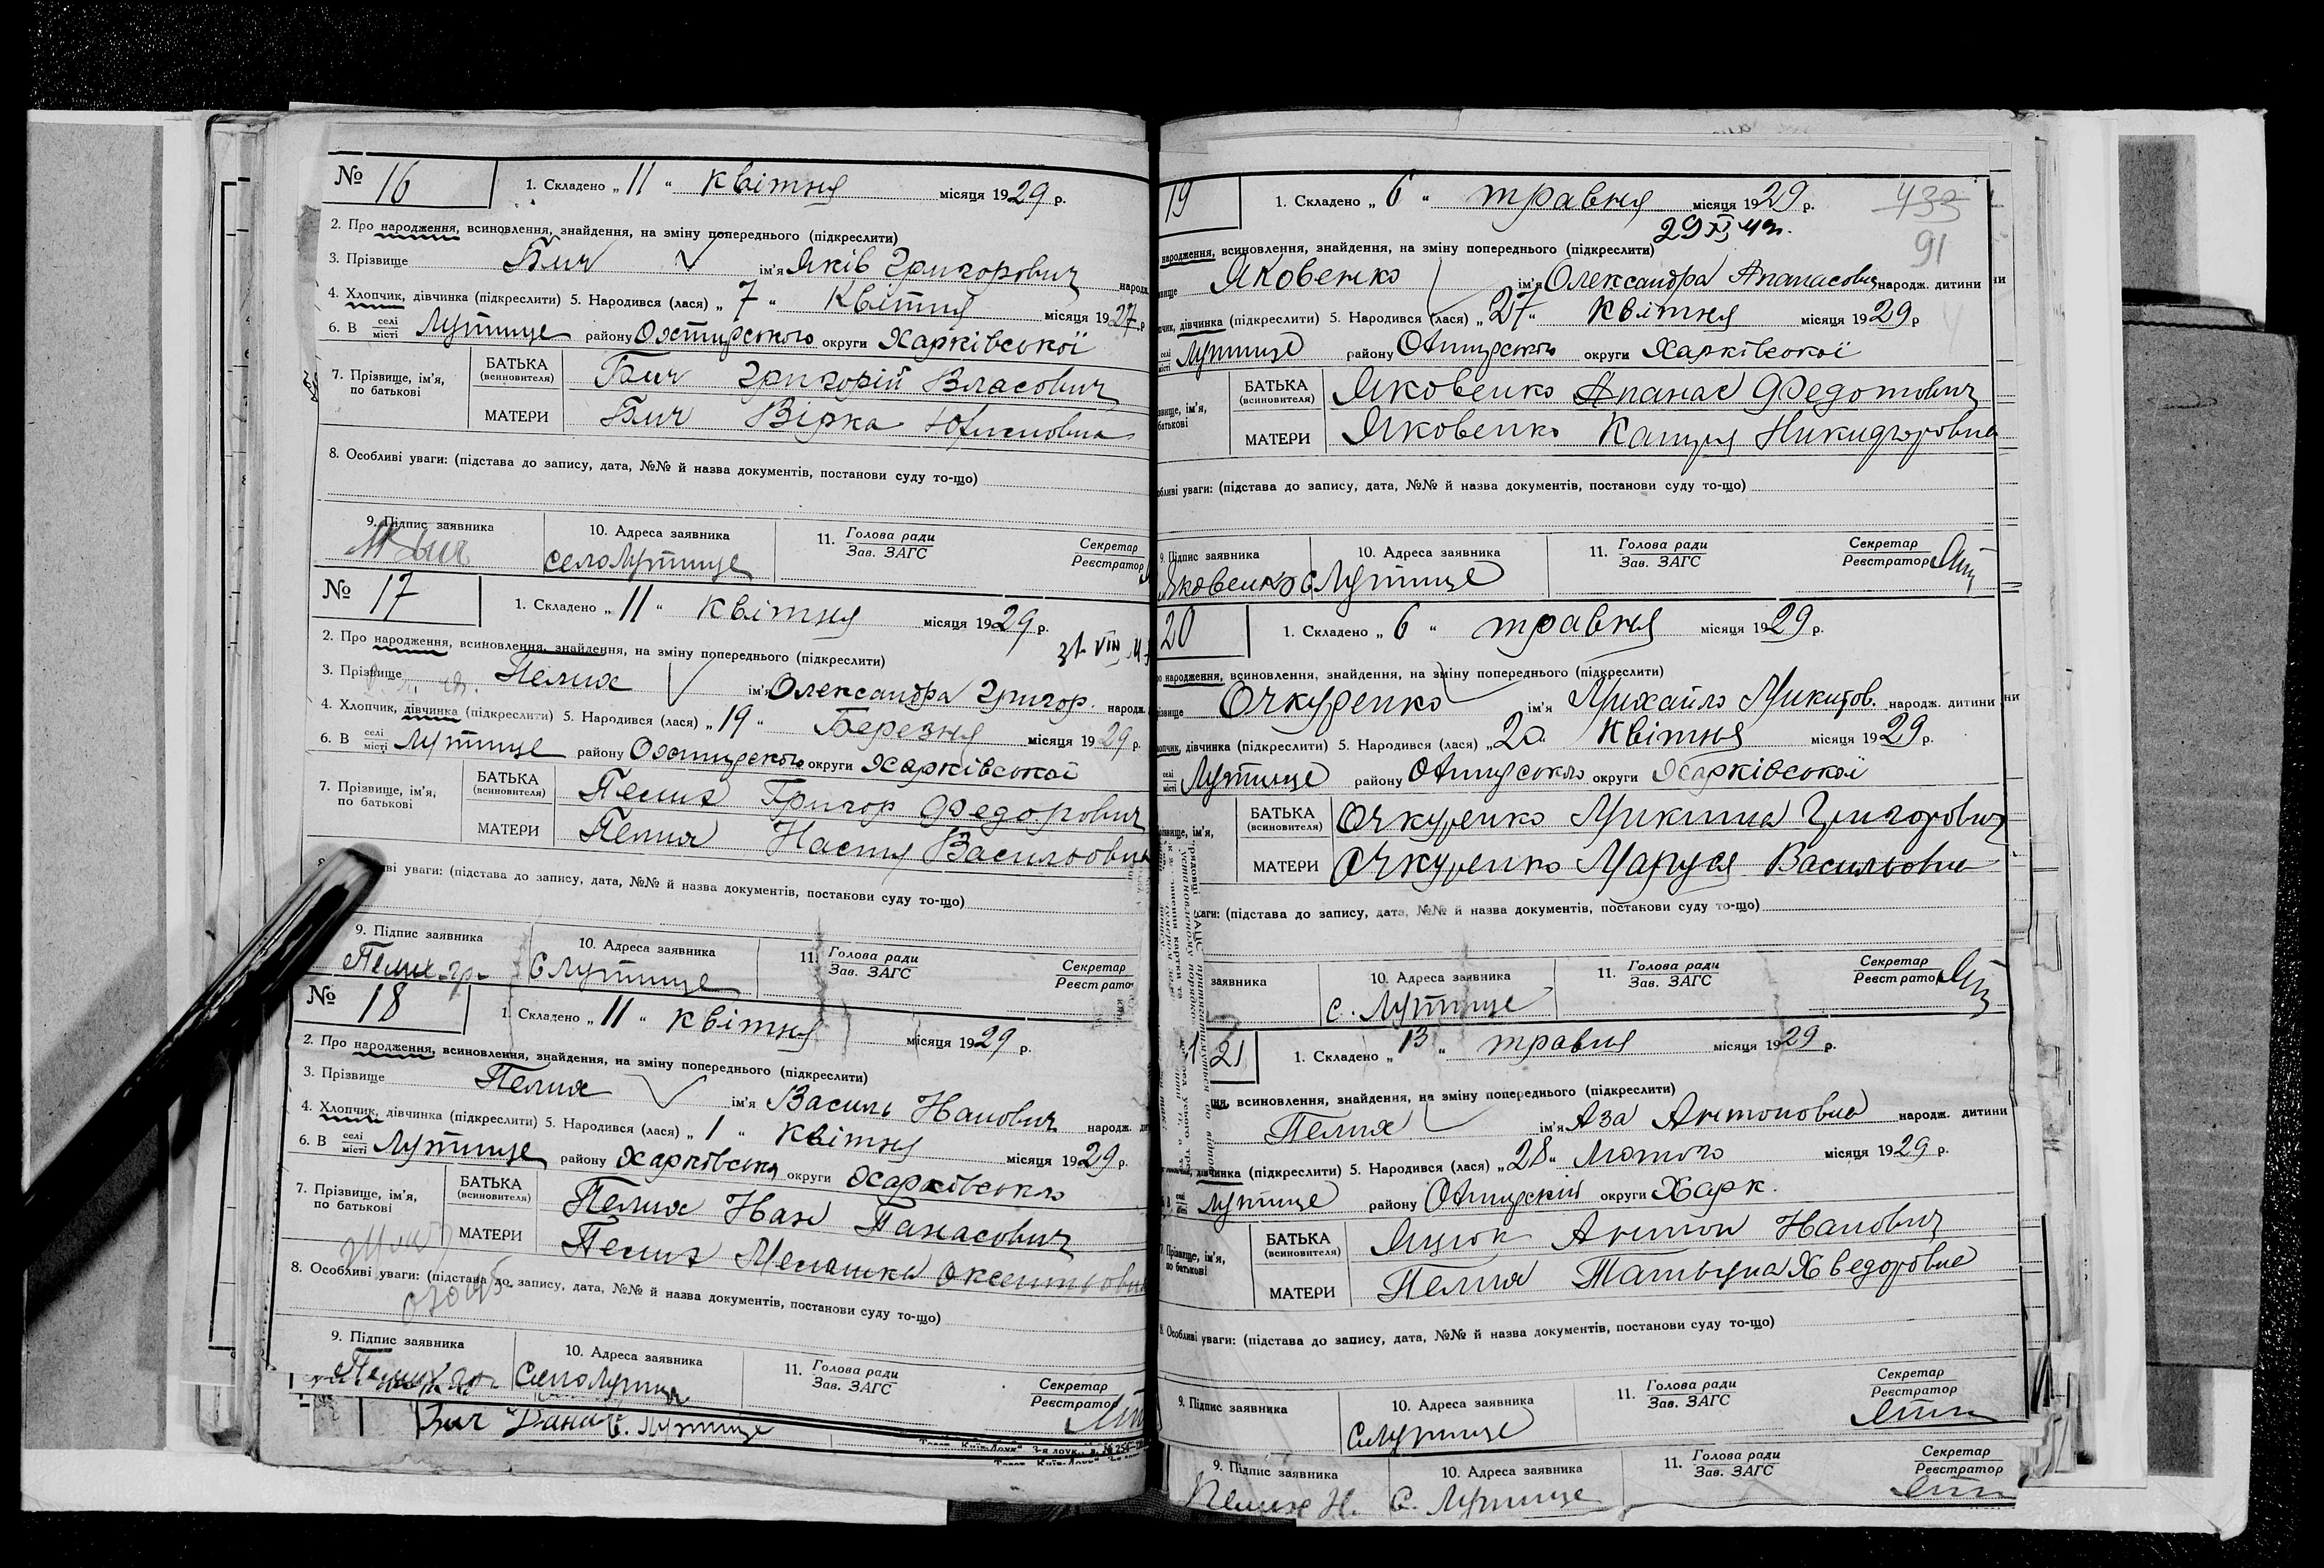 № 16
1. Складено „ 11 “ квітня місяця 1929 р.
2. Про народження, всиновлення, знайдення, на зміну попереднього (підкреслити)
3. Прізвище Бич ім'я Яків Григорович народж.
4. Хлопчик, дівчинка (підкреслити) 5. Народився (лася) „ 7 “ Квітня місяця 1927 р
6. В селі місті Лутище району Охтирського округи Харківської
7. Прізвище, ім'я, по батькові
БАТЬКА (всиновителя) Бич Григорій Власович
МАТЕРИ Бич Вірка
8. Особливі уваги: (підстава до запису, дата, №№ й назва документів, постанови суду то-що)
9. Підпис заявника Бич
10. Адреса заявника село Лутище
11. Голова ради Зав. ЗАГС
Секретар Реєстратор
№ 17
1. Складено „ 11 “ квітня місяця 1929 р.
2. Про народження, всиновлення, знайдення, на зміну попереднього (підкреслити)
31 VIII
3. Прізвище Пелих ім'я Олександра Григор. народж.
4. Хлопчик, дівчинка (підкреслити) 5. Народився (лася) „ 19 “ Березня місяця 1929 р.
6. В селі місті Лутище району Охтирського округи Харківської
7. Прізвище, ім'я, по батькові
БАТЬКА (всиновителя) Пелих Григор Федорович
МАТЕРИ Пелих Настя Васильовна
уваги: (підстава до запису, дата, №№ й назва документів, постанови суду то-що)
9. Підпис заявника Пелих гр.
10. Адреса заявника С Лутище
11. Голова ради Зав. ЗАГС
Секретар Реєстратор
№ 18
1. Складено „ 11 “ квітня місяця 1929 р.
2. Про народження, всиновлення, знайдення, на зміну попереднього (підкреслити)
3. Прізвище Пелих ім'я Василь Іванович народж.
4. Хлопчик, дівчинка (підкреслити) 5. Народився (лася) „ 1 “ Квітня місяця 1929 р.
6. В селі місті Лутище району Харківськ округи Харківсько
7. Прізвище, ім'я, по батькові
БАТЬКА (всиновителя) Пелих Іван Панасович
МАТЕРИ Пелих Мелашка Оксентьовна
8. Особливі уваги: (підстава до запису, дата, №№ й назва документів, постанови суду то-що)
9. Підпис заявника Пелих
10. Адреса заявника Село Лутище
11. Голова ради Зав. ЗАГС
Секретар Реєстратор
С. Лутище
19
1. Складено „ 6 “ травня місяця 1929 р.
433
91
народження, всиновлення, знайдення, на зміну попереднього (підкреслити)
Яковенко ім'я Олександра Апанасовна народж. дитини
дівчинка (підкреслити) 5. Народився (лася) „ 27 “ Квітня місяця 1929 р
селі місті Лутище району Охтирського округи Харківської
БАТЬКА (всиновителя) Яковенко Апанас Федотович
МАТЕРИ Яковенко Катря Никифоровна
уваги: (підстава до запису, дата, №№ й назва документів, постанови суду то-що)
9. Підпис заявника Яковенко
10. Адреса заявника С Лутище
11. Голова ради Зав. ЗАГС
Секретар Реєстратор
20
1. Складено „ 6 “ травня місяця 1929 р.
народження, всиновлення, знайдення, на зміну попереднього (підкреслити)
Очкуренко ім'я Михайло Микитов. народж. дитини
дівчинка (підкреслити) 5. Народився (лася) „ 20 “ Квітня місяця 1929 р.
селі місті Лутище району Охтирського округи Харківської
БАТЬКА (всиновителя) Очкуренко Микита Григорович
МАТЕРИ Очкуренко Маруся Васильовна
уваги: (підстава до запису, дата, №№ й назва документів, постанови суду то-що)
заявника
10. Адреса заявника с. Лутище
11. Голова ради Зав. ЗАГС
Секретар Реєстратор
21
1. Складено „ 13 “ травня місяця 1929 р.
всиновлення, знайдення, на зміну попереднього (підкреслити)
Пелих ім'я Аза Антоновна народж. дитини
дівчинка (підкреслити) 5. Народився (лася) „ 28 “ Лютого місяця 1929 р.
селі місті Лутище району Охтирский округи Харк.
Прізвище, ім'я, по батькові
БАТЬКА (всиновителя) Яцюк Антон Іванович
МАТЕРИ Пелих Татьяна Хведоровна
8. Особливі уваги: (підстава до запису, дата, №№ й назва документів, постанови суду то-що)
9. Підпис заявника
10. Адреса заявника С Лутище
11. Голова ради Зав. ЗАГС
Секретар Реєстратор
9. Підпис заявника Пелих Н.
10. Адреса заявника С. Лутище
11. Голова ради Зав. ЗАГС
Секретар Реєстратор